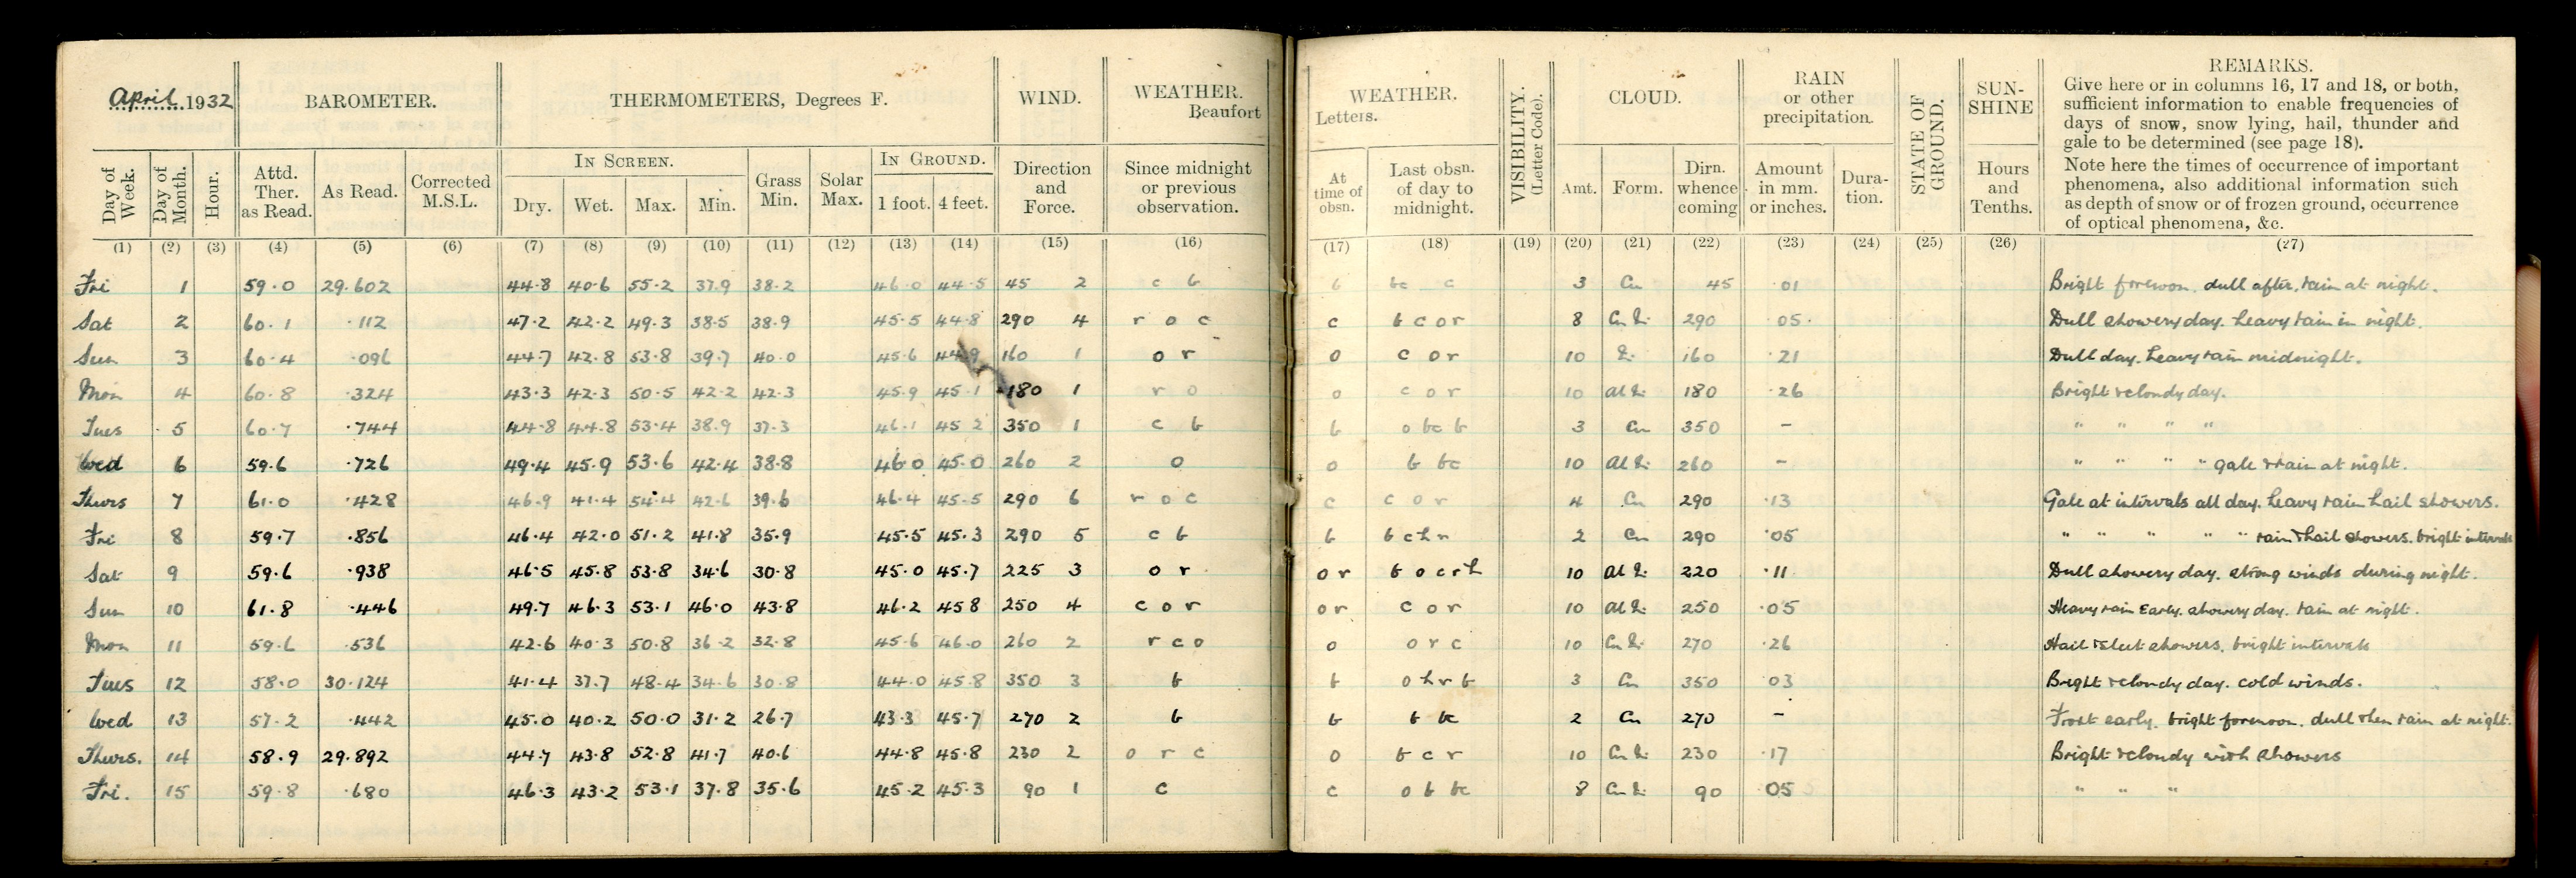 April 1932
BAROMETER.
THERMOMETERS, Degrees F.
WIND.
WEATHER.
Beaufort
WEATHER.
Letters.
VISIBILITY. (Letter Code).
CLOUD.
RAIN
or other
precipitation.
STATE OF GROUND.
SUN-
SHINE
REMARKS.
Give here or in columns 16, 17 and 18, or both,
sufficient information to enable frequencies of
days of snow, snow lying, hail, thunder and
gale to be determined (see page 18).
Note here the times of occurrence of important
phenomena, also additional information such
as depth of snow or of frozen ground, occurrence
of optical phenomena, &c.
Day of Week.
Day of Month.
Hour.
Attd.
Ther.
as Read.
As Read.
Corrected
M.S.L.
IN SCREEN.
Dry. Wet. Max. Min.
Grass
Min.
Solar
Max.
IN GROUND.
1 foot. 4 feet.
Direction
and
Force.
Since midnight
or previous
observation.
At
time of
obsn.
Last obsn.
of day to
midnight.
Amt. Form.
Dirn.
whence
coming
Amount
in mm.
or inches.
Dura-
tion.
Hours
and
Tenths.
(1) (2) (3) (4) (5) (6) (7) (8) (9) (10) (11) (12) (13) (14) (15) (16) (17) (18) (19) (20) (21) (22) (23) (24) (25) (26) (27)
Fri 1 59.0 29.602 44.8 40.6 55.2 37.9 38.2 46.0 44.5 45 2 c b b bc c 3 Cu 45 .01 Bright forenoon. dull after. rain at night.
Sat 2 60.1 .112 47.2 42.2 49.3 38.5 38.9 45.5 44.8 290 4 r o c c b c o r 8 290 .05 Dull showery day. heavy rain in night.
Sun 3 60.4 .096 44.7 42.8 53.8 39.7 40.0 45.6 44.9 160 1 o r o c o r 10 160 .21 Dull day. heavy rain midnight.
Mon 4 60.8 .324 43.3 42.3 50.5 42.2 42.3 45.9 45.1 180 1 r o o c o r 10 180 .26 Bright & cloudy day.
Tues 5 60.7 .744 44.8 44.8 53.4 38.9 37.3 46.1 45.2 350 1 c b b o bc b 3 Cu 350 – " " " "
Wed 6 59.6 .726 49.4 45.9 53.6 42.4 38.8 46.0 45.0 260 2 o o b bc 10 260 – " " " " gale & rain at night.
Thurs 7 61.0 .428 46.9 41.4 54.4 42.6 39.6 46.4 45.5 290 6 r o c c c o r 4 Cu 290 .13 Gale at intervals all day. heavy rain hail showers.
Fri 8 59.7 .856 46.4 42.0 51.2 41.8 35.9 45.5 45.3 290 5 c b b b c h r 2 Cu 290 .05 " " " " " rain & hail showers. bright intervals
Sat 9 59.6 .938 46.5 45.8 53.8 34.6 30.8 45.0 45.7 225 3 o r o r b o c r h 10 220 .11 Dull showery day. strong winds during night.
Sun 10 61.8 .446 49.7 46.3 53.1 46.0 43.8 46.2 45.8 250 4 c o r o r c o r 10 250 .05 Heavy rain Early. showery day. rain at night.
Mon 11 59.6 .536 42.6 40.3 50.8 36.2 32.8 45.6 46.0 260 2 r c o o o r c 10 270 .26 Hail & sleet showers. bright intervals
Tues 12 58.0 30.124 41.4 37.7 48.4 34.6 30.8 44.0 45.8 350 3 b b o h r b 3 Cu 350 .03 Bright & cloudy day. cold winds.
Wed 13 57.2 .442 45.0 40.2 50.0 31.2 26.7 43.3 45.7 270 2 b b b bc 2 Cu 270 – Frost early. bright forenoon. dull then rain at night.
Thurs. 14 58.9 29.892 44.7 43.8 52.8 41.7 40.6 44.8 45.8 230 2 o r c o b c r 10 230 .17 Bright & cloudy with showers
Fri. 15 59.8 .680 46.3 43.2 53.1 37.8 35.6 45.2 45.3 90 1 c c o b bc 8 90 .05 " " "